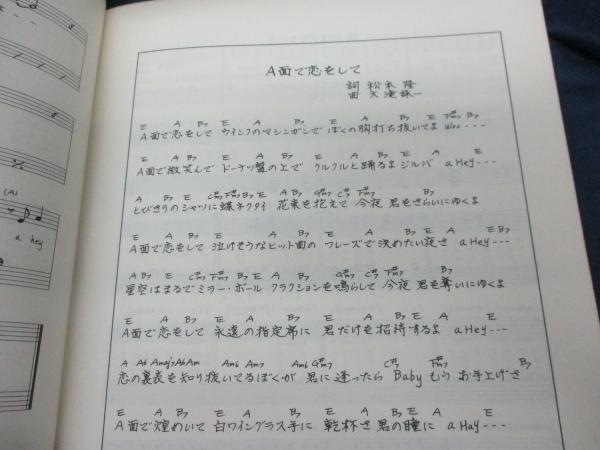 (A)
a hey
A面で恋をして
詞 松本 隆
曲 大滝詠一
E A B7 E A B7 E A B7 E F#m7 B7
A面で恋をして ウインクのマシンガンで ぼくの胸打ち抜いてよ Woo---
E A B7 E A B7 E A B7 E A E
A面で微笑んで ドーナツ盤の上で クルクルと踊るよ ジルバ a Hey---
A B7 E C#m7 F#m7 B7 E A B7 G#m7 C#7 F#m7 B7
とびきりのシャツに蝶ネクタイ 花束を抱えて 今夜 君をさらいにゆくよ
E A B7 E A B7 E A B7 E A E B7
A面で恋をして 泣けそうなヒット曲の フレーズで決めたい夜さ a Hey---
A B7 E C#m7 F#m7 B7 E A B7 G#m7 C#7 F#m7 B7
星空はまるでミラー・ボール クラクションを鳴らして 今夜 君を奪いにゆくよ
E A B7 E A B7 E A B7 E A E
A面で恋をして 永遠の指定席に 君だけを招待するよ a Hey---
A Ab Amaj7 Ab Am Am6 Am7 Am6 G#m7 C#7 F#m7 B7
恋の裏表を知り抜いてるぼくが 君に逢ったら Baby もう お手上げさ
E A B7 E A B7 E A B7 E A E
A面で煌めいて 白ワイングラス手に 乾杯さ君の瞳に a Hay---